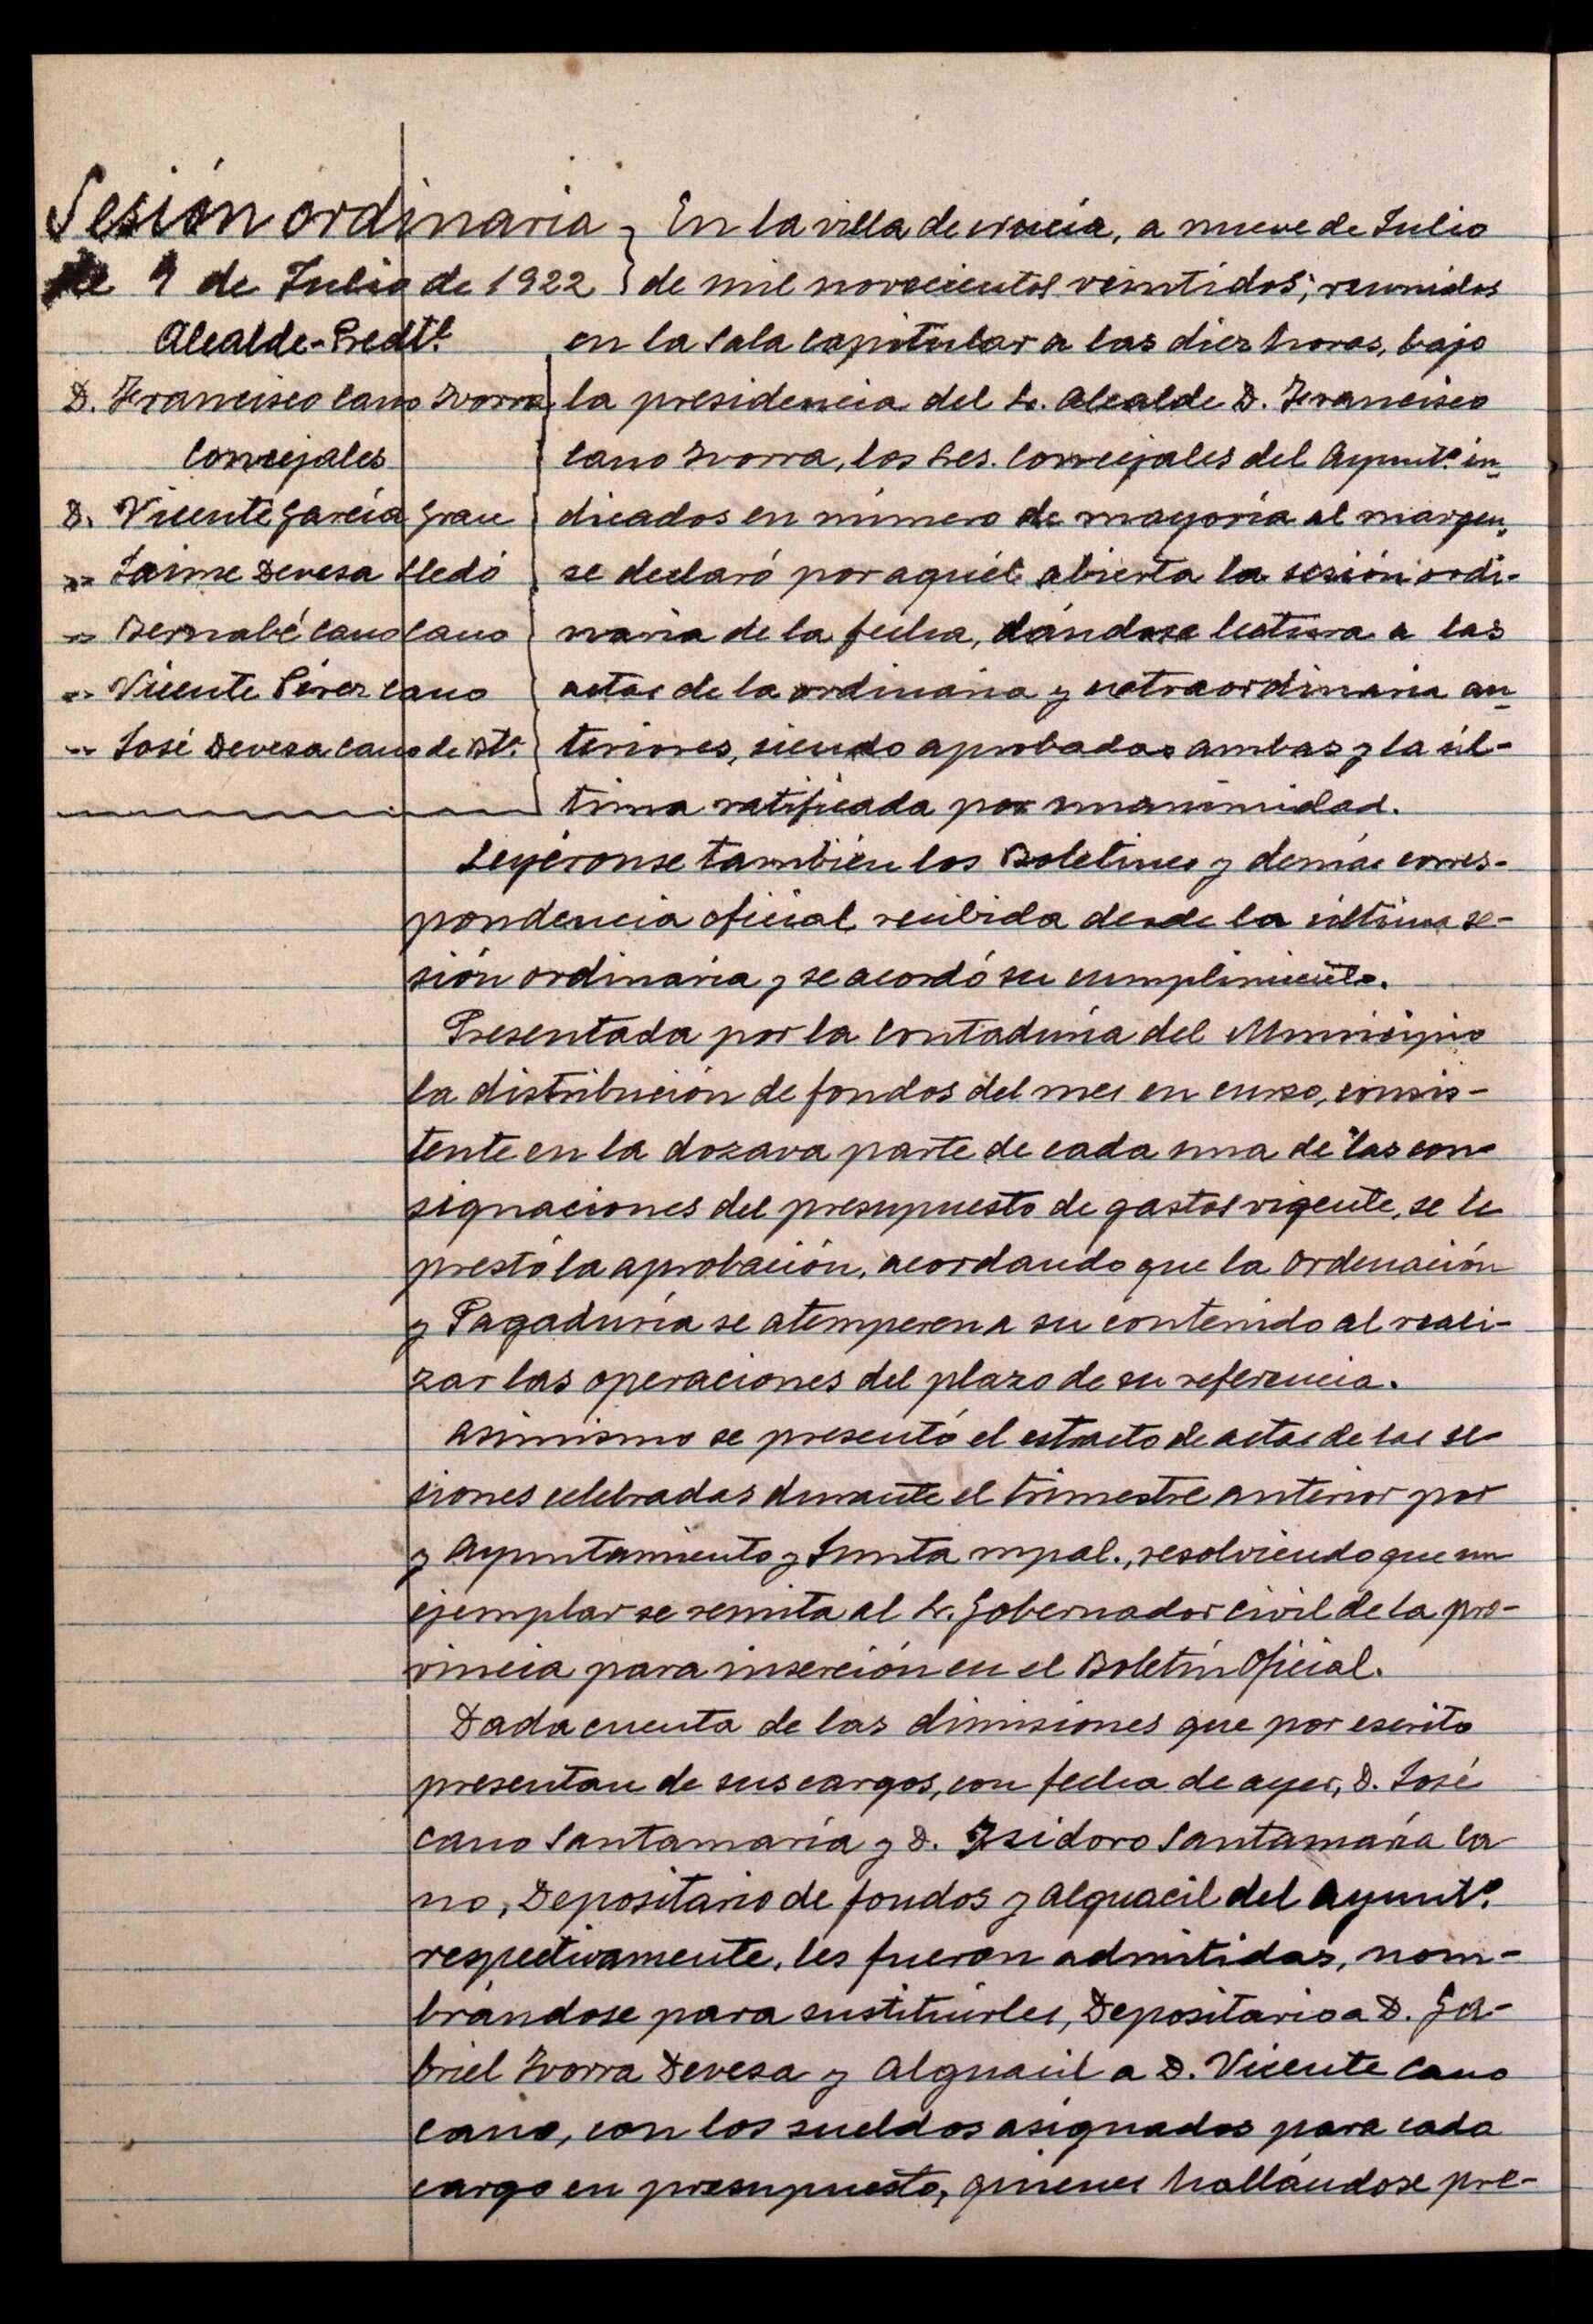 Sesión ordinaria
de 9 de Julio de 1922
Alcalde-Predte.
D. Francisco Cano Ivorra
Concejales
D. Vicente García Grau
" Jaime Devesa Lledó
" Bernabé Cano Cano
" Vicente Pérez Cano
" José Devesa Cano de Bta.
En la villa de, a nueve de Julio
de mil novecientos veintidos; reunidos
en la Sala Capitular a las diez horas, bajo
la presidencia del Sr. Alcalde D. Francisco
Cano Ivorra, los Sres. Concejales del Ayunto. in-
dicados en número de mayoría al margen,
se declaró por aquél abierta la sesión ordi-
naria de la fecha, dándose lectura a las
actas de la ordinaria y extraordinaria an-
teriores, siendo aprobadas ambas y la úl-
tima ratificada por unanimidad.
Leyéronse también los Boletines y demás corres-
pondencia oficial recibida desde la última se-
sión ordinaria y se acordó su cumplimiento.
Presentada por la Contaduría del Municipio
la distribución de fondos del mes en curso, consis-
tente en la dozava parte de cada una de las con-
signaciones del presupuesto de gastos vigente, se le
prestó la aprobación, acordando que la Ordenación
y Pagaduría se atemperen a su contenido al reali-
zar las operaciones del plazo de su referencia.
Asimismo se presentó el estracto de actas de las se-
siones celebradas durante el trimestre anterior por
y Ayuntamiento y Junta mpal., resolviendo que un
ejemplar se remita al Sr. Gobernador civil de la pro-
vincia para inserción en el Boletín Oficial.
Dada cuenta de las dimisiones que por escrito
presentan de sus cargos, con fecha de ayer, D. José
Cano Santamaría y D. Isidoro Santamaría Ca-
no, Depositario de fondos y Alguacil del Ayunto.
respectivamente, les fueron admitidas, nom-
brándose para sustituírles, Depositario a D. Ga-
briel Ivorra Devesa y Alguacil a D. Vicente Cano
Cano, con los sueldos asignados para cada
cargo en presupuesto, quienes hallándose pre-